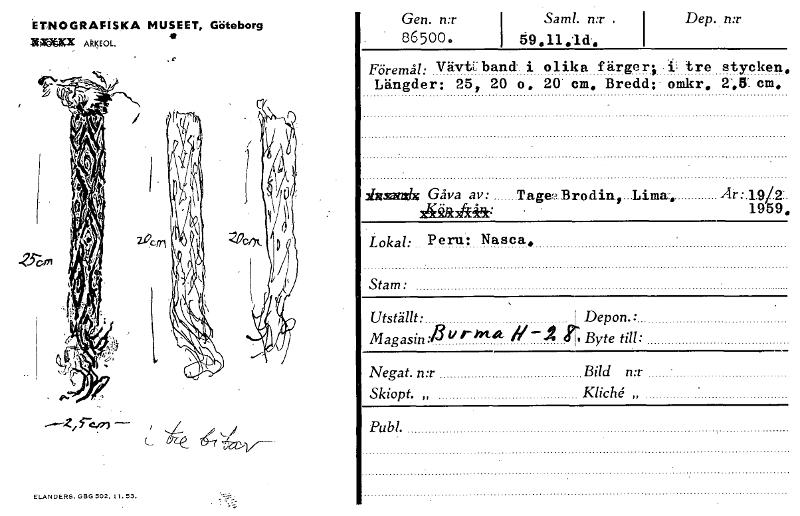 ETNOGRAFISKA MUSEET, Göteborg
ARKEOL.
25cm
20cm
20cm
2,5cm
i tre bitar
ELANDERS, GBG 502, 11. 53.
Gen. n:r Saml. n:r . Dep. n:r
86500. 59.11.1d.
Föremål: Vävt band i olika färger; i tre stycken.
Längder: 25, 20 o. 20 cm. Bredd: omkr. 2.5 cm.
Gåva av: Tage Brodin, Lima. År: 19/2
Köp från: 1959.
Lokal: Peru: Nasca.
Stam:
Utställt: Depon.:
Magasin: Burma H-28. Byte till:
Negat. n:r Bild n:r
Skiopt. „ Kliché „
Publ.